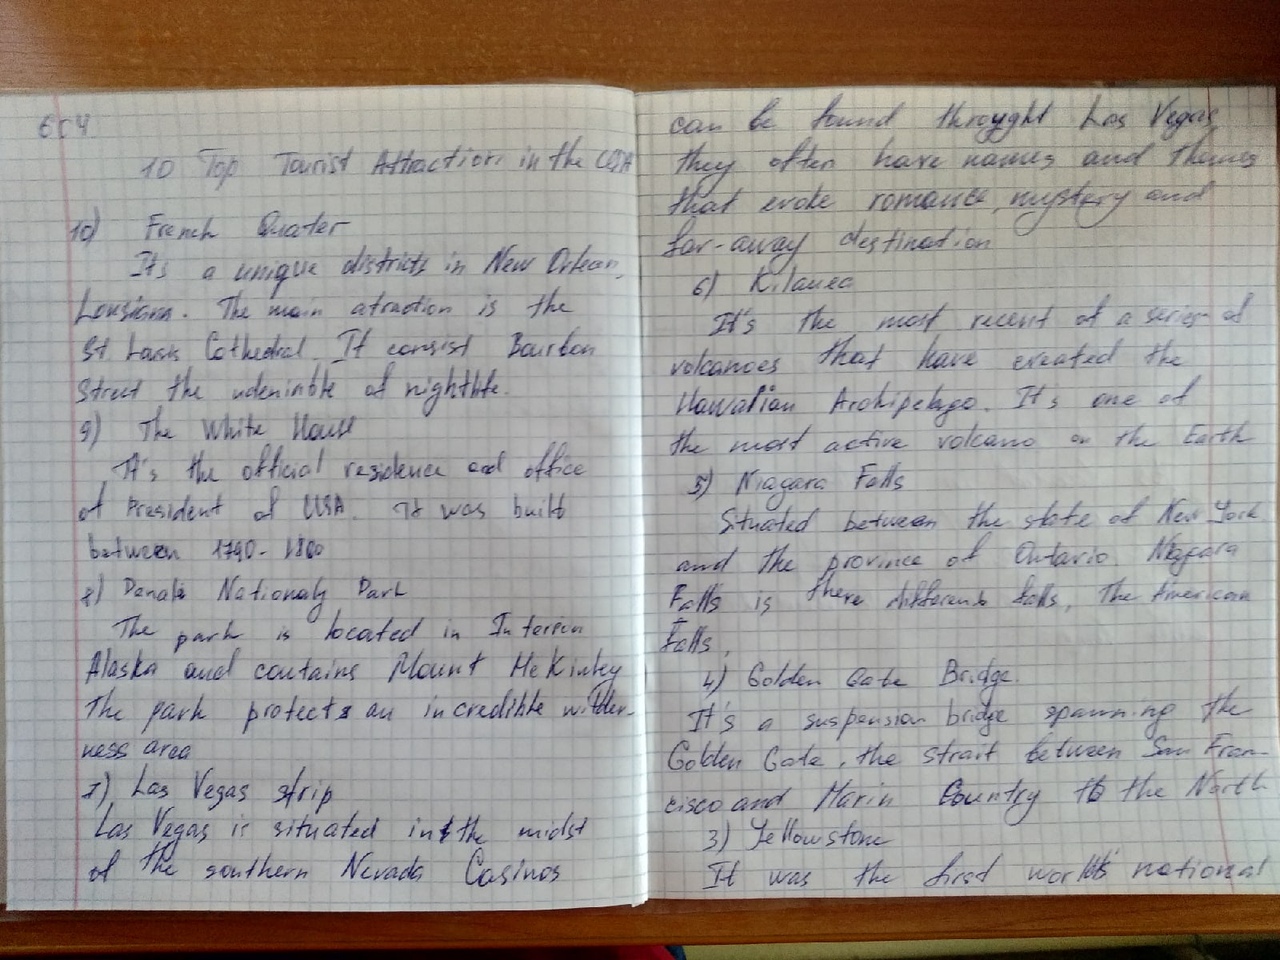 10 Top Tourist Attraction in the USA
10) French Quater
It's a unique districts in New Orlean,
Lousiana. The main atraction is the
St Lauis Cathedral. It consist Bourbon
Street the of nightlife.
9) The White House
It's the official residence and office
of President of USA. It was built
between 1790-1800
8) Denali Nationaly Park
The park is located in Interion
Alaska and contains Mount McKinley
The park protects an incredible wilder-
ness area
7) Las Vegas strip
Las Vegas is situated in the midst
of the southern Nevada Casinos
can be found throyght Las Vegas
they often have names and themes
that evoke romance, mystery and
far-away destination
6) Kilauea
It's the most recent of a series of
volcanoes that have created the
Hawaiian Archipelago. It's one of
the most active volcano on the Earth
5) Niagara Falls
Situated between the state of New York
and the province of Ontario Niagara
Falls is there different falls, The American
Falls,
4) Golden Gate Bridge.
It's a suspension bridge spawning the
Golden Gate, the strait between San Fran-
cisco and Marin Country to the North
3) Yellowstone
It was the first national